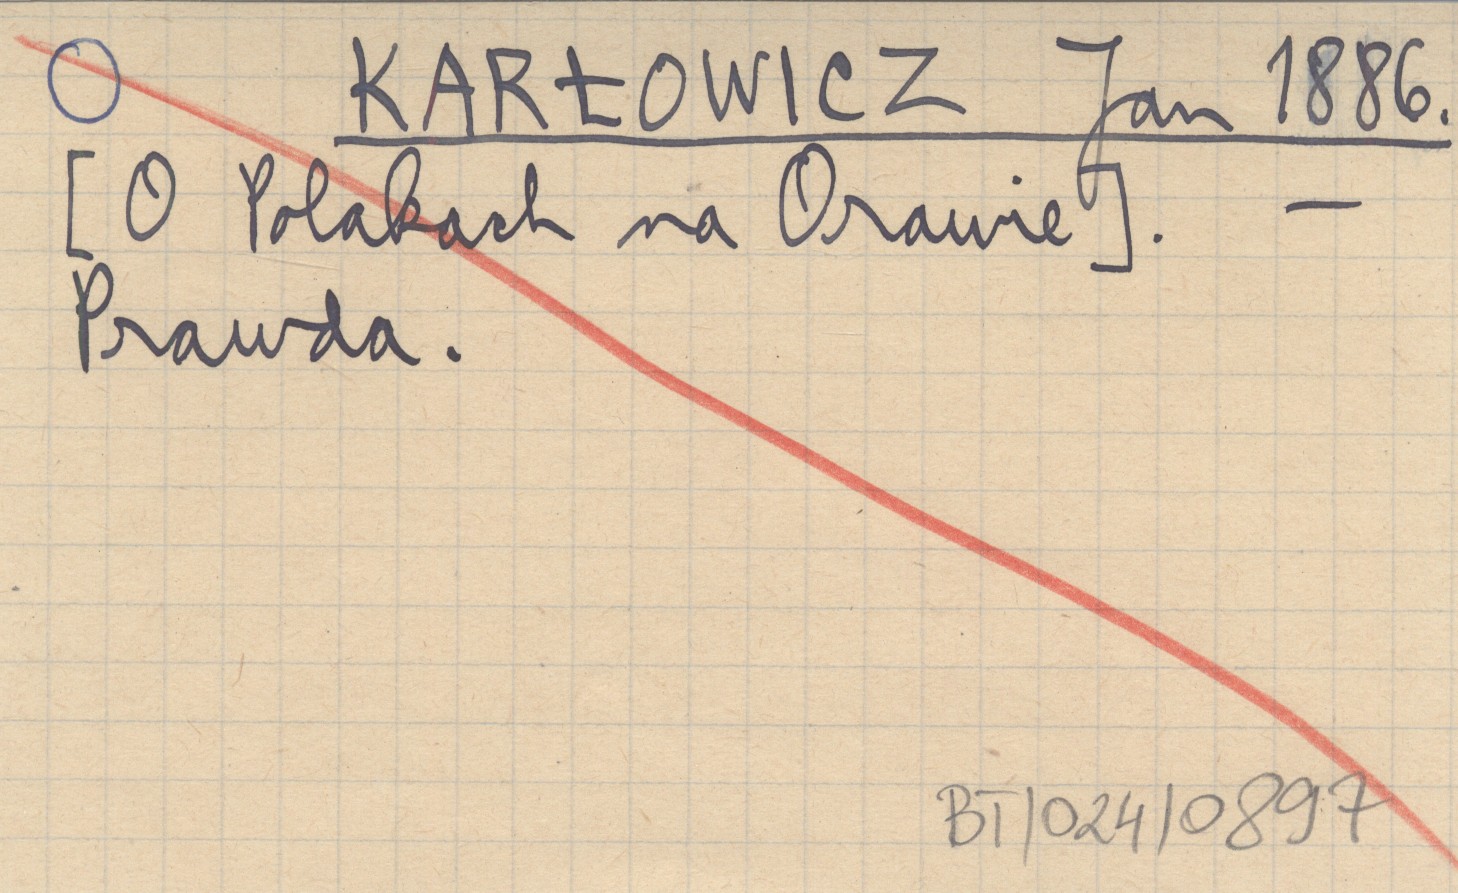 KARŁOWICZ Jan 1886.
[O Polakach na Orawie]. —
Prawda.
BT/024/0897